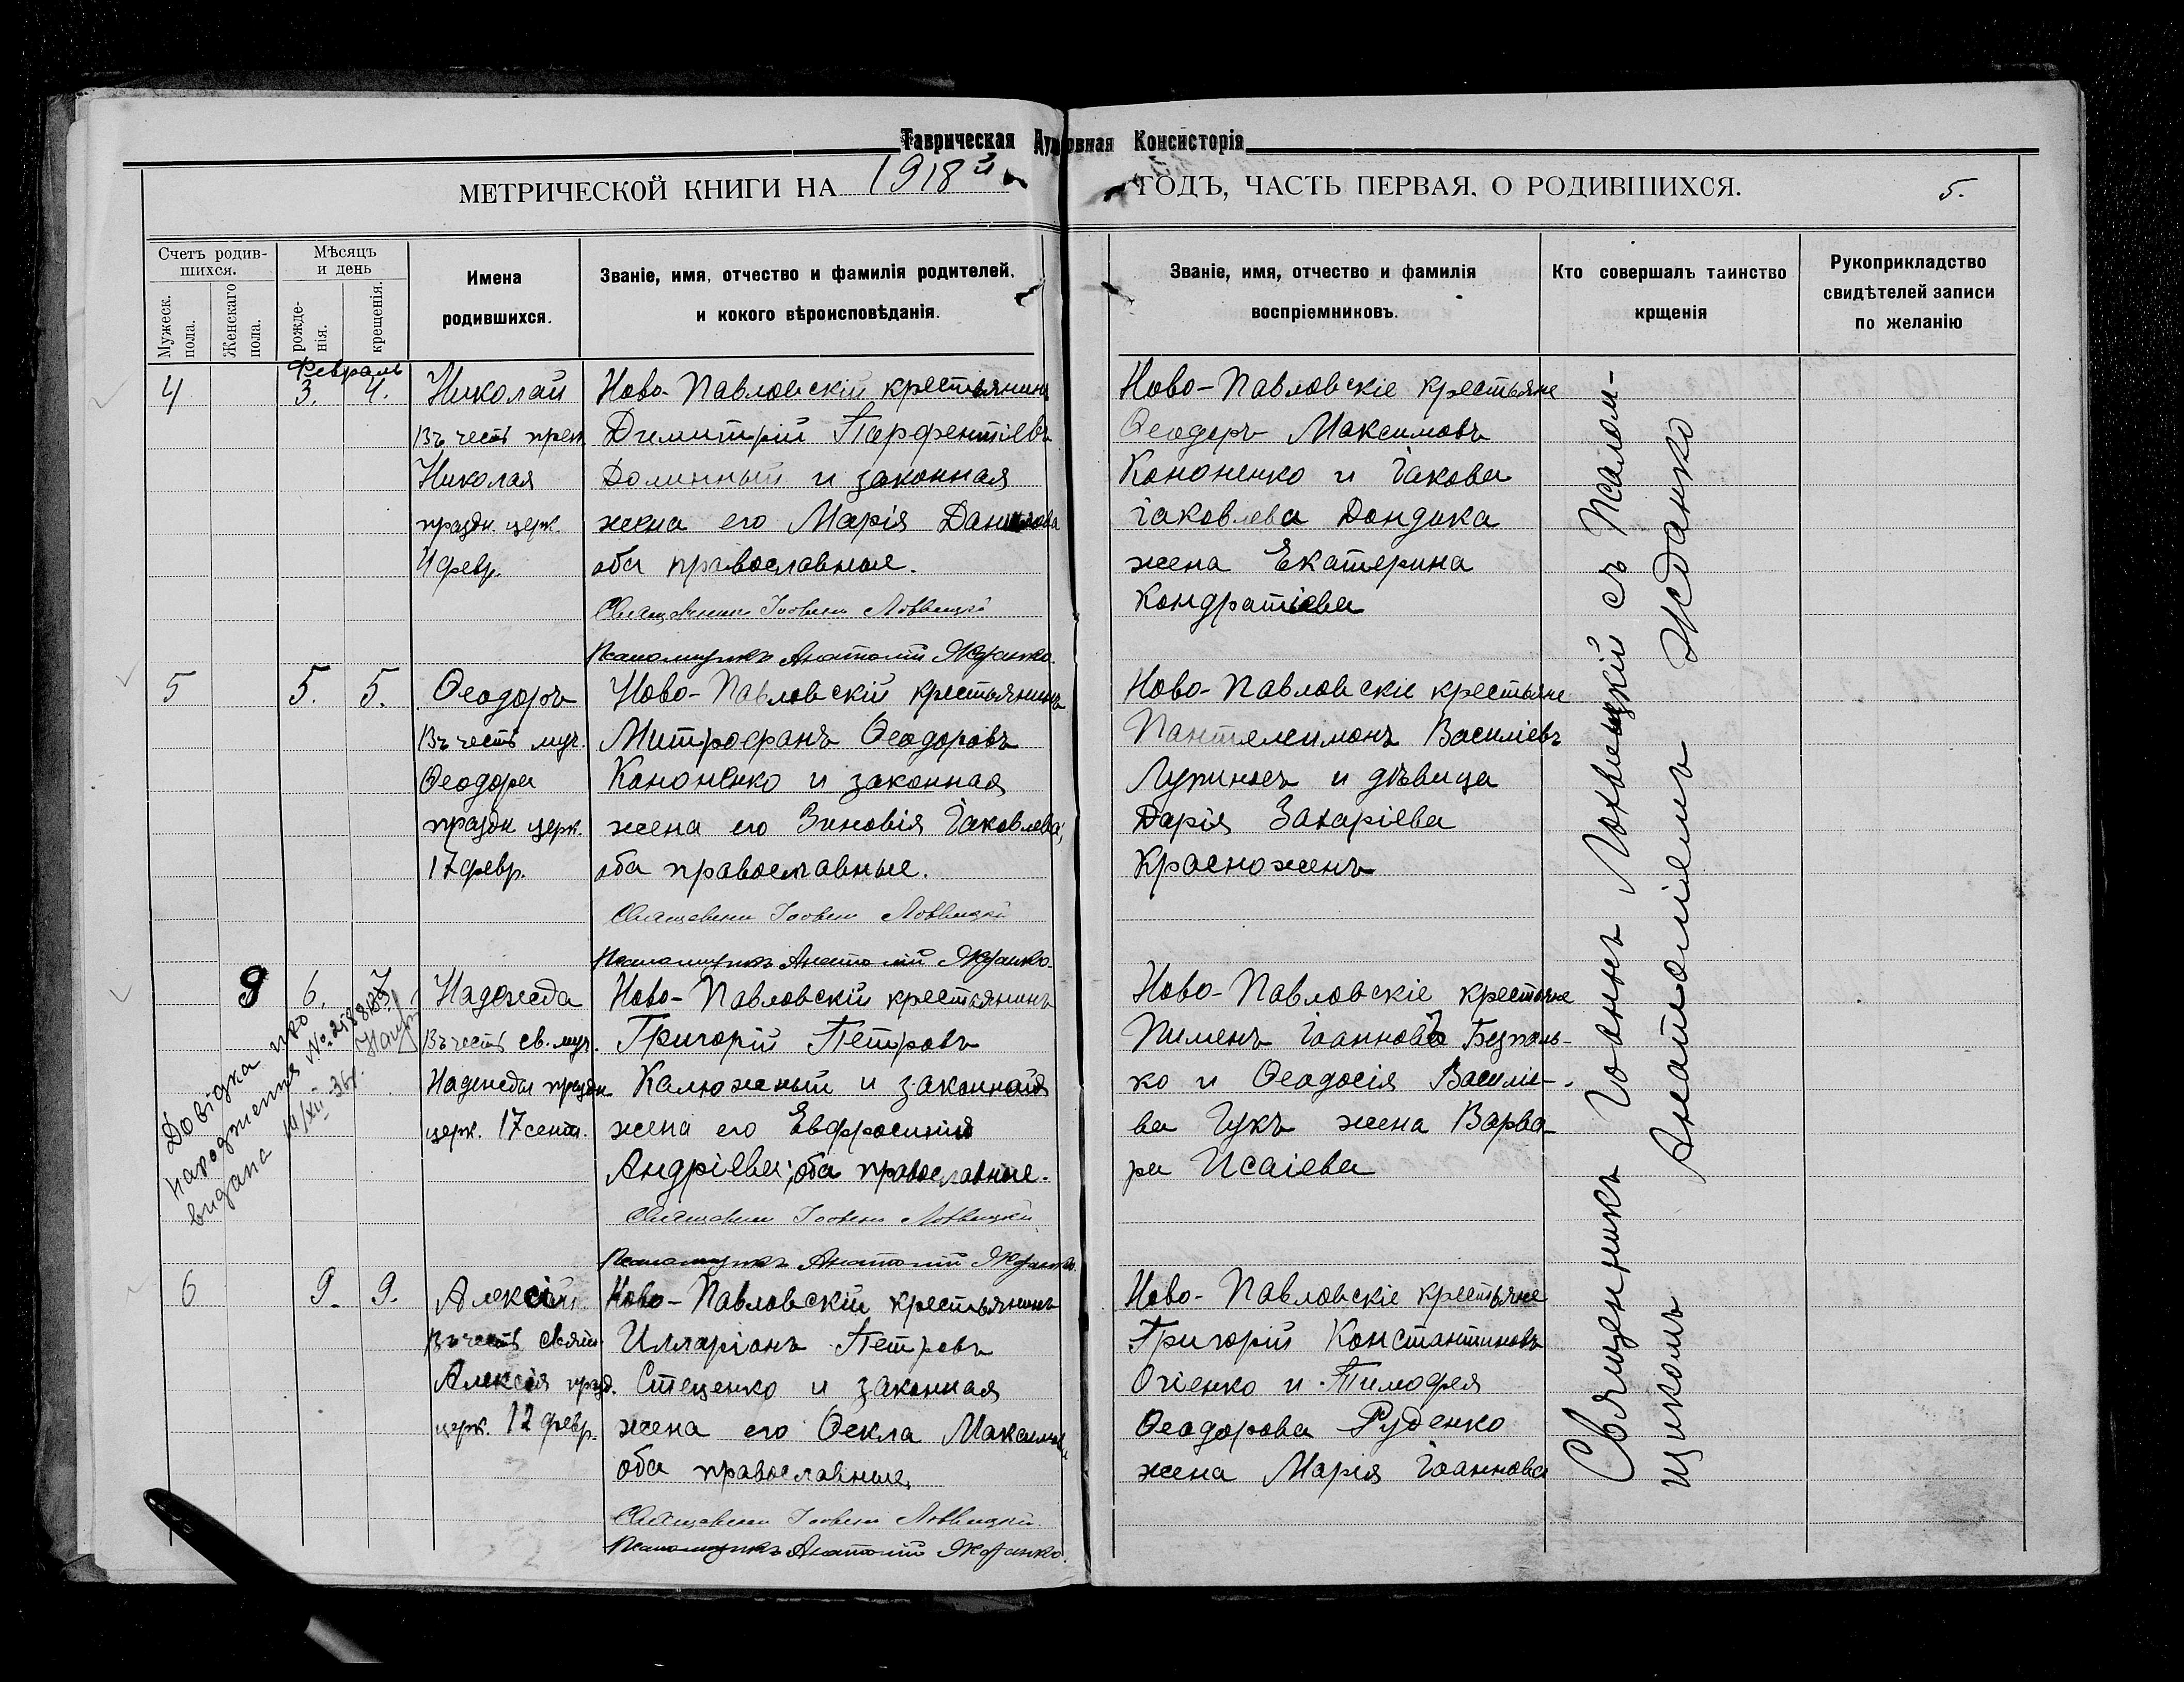 Таврическая Духовная Консисторія
МЕТРИЧЕСКОЙ КНИГИ НА 1918й ГОДЪ, ЧАСТЬ ПЕРВАЯ, О РОДИВШИХСЯ.
5.
Счетъ родив-
шихся.
Мужеск.
пола.
Женскаго
пола.
Мѣсяцъ
и день
рожде-
нія.
крещенія.
Имена
родившихся.
Званіе, имя, отчество и фамилія родителей,
и кокого вѣроисповѣданія.
Званіе, имя, отчество и фамилія
воспріемниковъ.
Кто совершалъ таинство
крщенія
Рукоприкладство
свидѣтелей записи
по желанію
Февраль
4
3. 4.
Николай
Въ честь преп
Николая
праздн. церк.
4 февр.
Ново-Павловскій крестьянинъ
Димитрій Парфентіевъ
Долинный и законная
жена его Марія Данилова
оба православные.
Псаломщикъ Анатолій Жданко.
Ново-Павловскіе крестьяне
Ѳеодоръ Максимовъ
Кононенко и Іакова
Іаковлева Дондика
жена Екатерина
Кондратіева
5
5. 5.
Ѳеодоръ
Въ честь муч.
Ѳеодора
праздн церк.
17 февр.
Ново-Павловскій крестьянинъ
Митрофанъ Ѳеодоровъ
Кононенко и законная
жена его Зиновія Іаковлева,
оба православные.
Псаломщикъ Анатолій Жданко.
Ново-Павловскіе крестьяне
Пантелеимонъ Василіевъ
и дѣвица
Дарія Захаріева
Красножонъ
6.
Надежда
Въ честь св. муч.
Надежды праздн
церк. 17 сент.
Довідка про
народження №
видана
Ново-Павловскій крестьянинъ
Григорій Петровъ
Калюжный и законная
жена его Евфросинія
Андріева; оба православные.
Псаломщикъ Анатолій Жданко.
Ново-Павловскіе крестьяне
Пименъ Іоанновъ
ко и Ѳеодосія Василіе-
ва Гукъ жена Варва-
ра Исаіева
6
9. 9.
Алексій
Въ честь святит.
Алексія празд.
церк. 12 февр.
Ново-Павловскій крестьянинъ
Илларіонъ Петровъ
Стеценко и законная
жена его Ѳекла
оба православные,
Псаломщикъ Анатолій Жданко.
Ново-Павловскіе крестьяне
Григорій Константиновъ
Огіенко и Тимофея
Ѳеодорова Руденко
жена Марія Іоаннова
Священникъ Іоаннъ Лохвицкій съ Псалом-
щикомъ Анатоліемъ Жданко